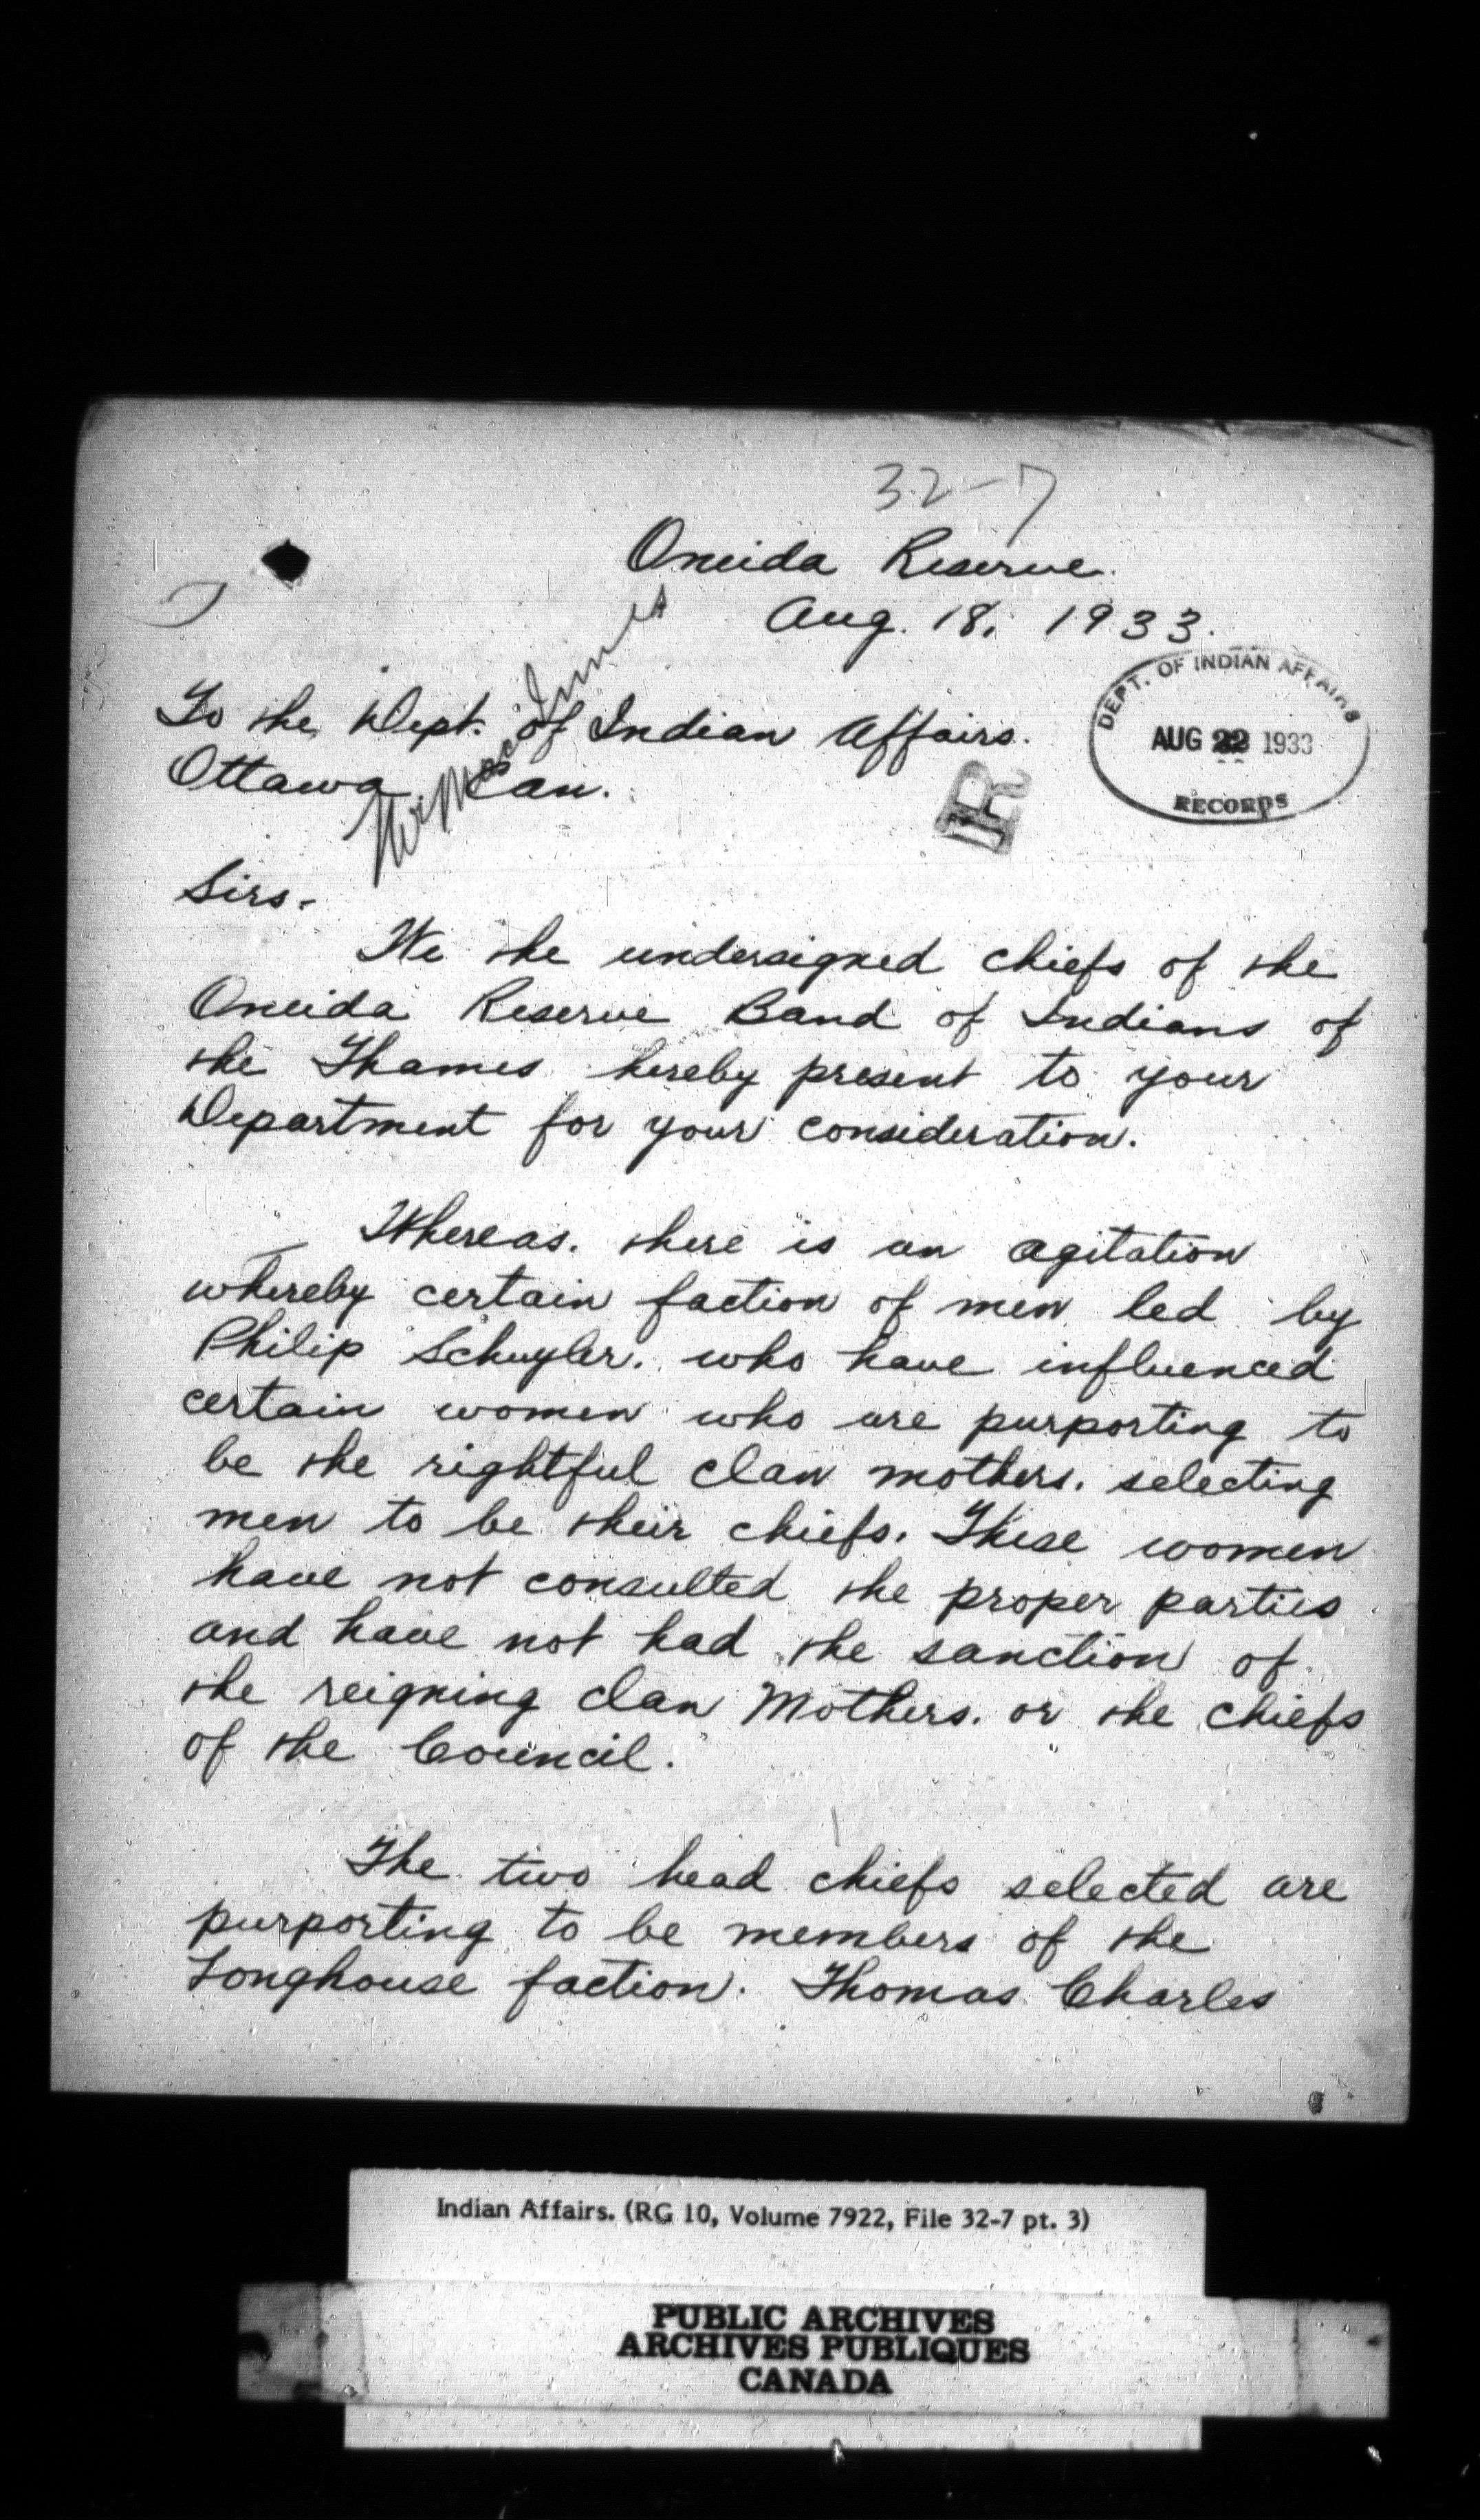 32-7
Oneida Reserve.
Aug. 18, 1933.
To the Dept. of Indian Affairs.
Ottawa Can.
Mr. MacInnes
DEPT. OF INDIAN AFFAIRS
AUG 22 1933
RECORDS
R
Sirs-
We the undersigned chiefs of the
Oneida Reserve Band of Indians of
the Thames hereby present to your
Department for your consideration.
Whereas. there is an agitation
whereby certain faction of men led by
Philip Schuyler. who have influenced
certain women who are purporting to
be the rightful clan mothers. selecting
men to be their chiefs. These women
have not consulted the proper parties
and have not had the sanction of
the reigning clan Mothers. or the chiefs
of the Council.
The two head chiefs selected are
purporting to be members of the
Longhouse faction. Thomas Charles
Indian Affairs. (RG 10, Volume 7922, File 32-7 pt. 3)
PUBLIC ARCHIVES
ARCHIVES PUBLIQUES
CANADA